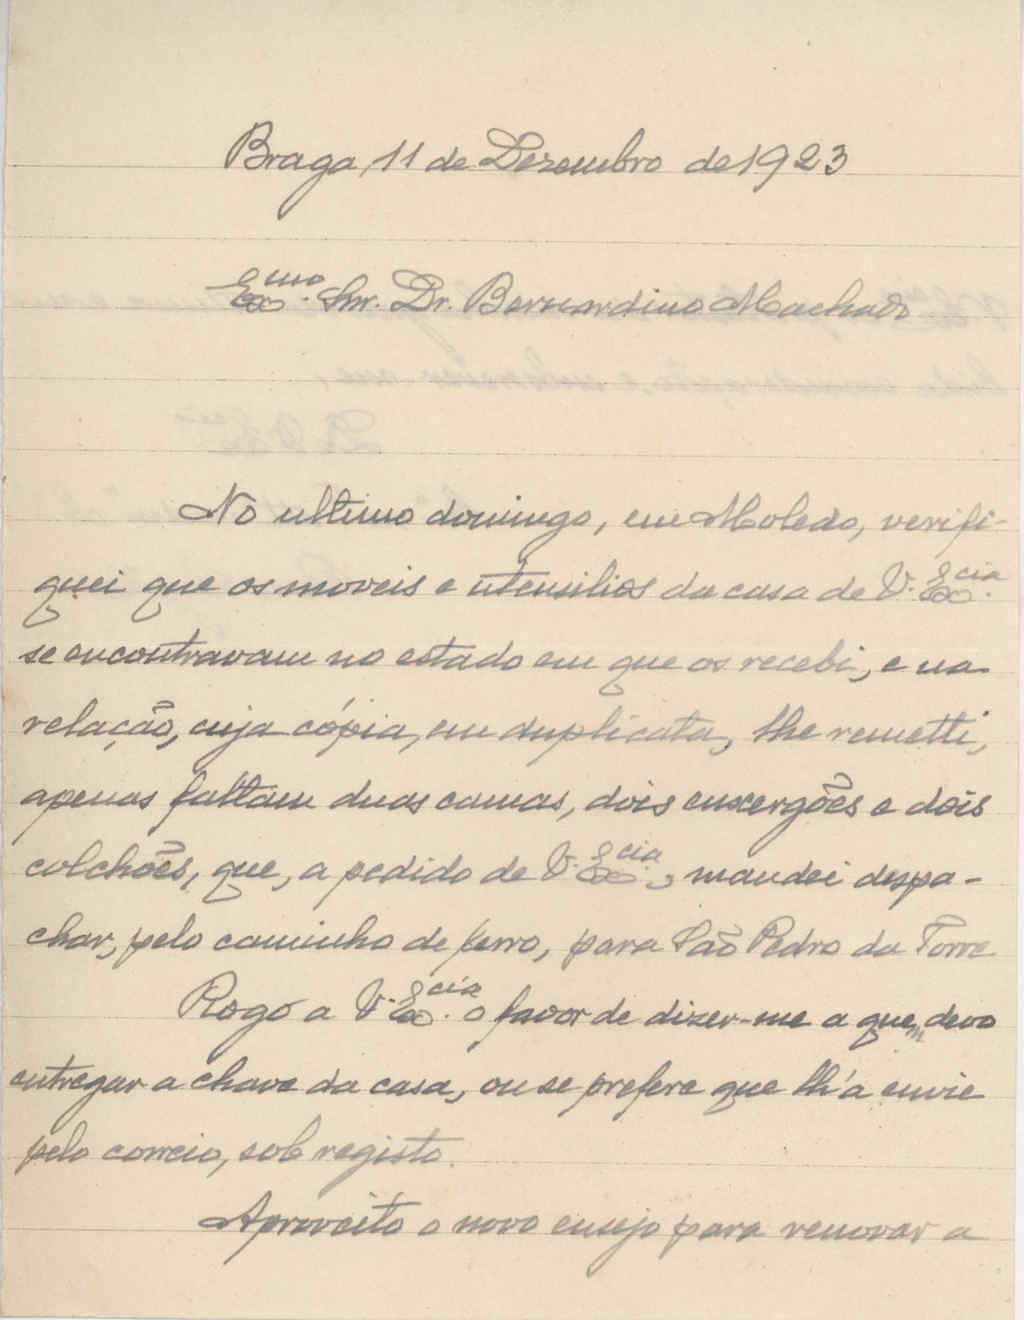 Braga, 11 de Dezembro de 1923
Exmo. Snr. Dr. Bernardino Machado
No ultimo domingo, em Moledo, verifi-
quei que os moveis e utensilios da casa de V. Excia.
se encontravam no estado em que os recebi, e na
relação, cuja cópia, em duplicata, lhe remetti,
apenas faltam duas camas, dois enxergões e dois
colchões, que, a pedido de V. Excia., mandei despa-
char, pelo caminho de ferro, para São Pedro da Torre
Rogo a V. Excia. o favor de dizer-me a quem devo
entregar a chave da casa, ou se prefere que lh'a envie
pelo correio, sob registo.
Aproveito o novo ensejo para renovar a